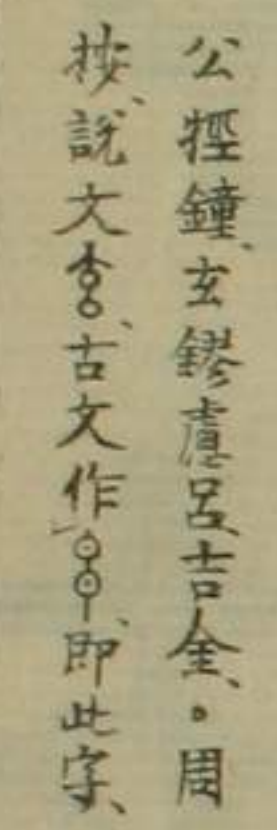 公牼鐘、玄鏐呂吉金、。周
按、說文、古文作、即此字、